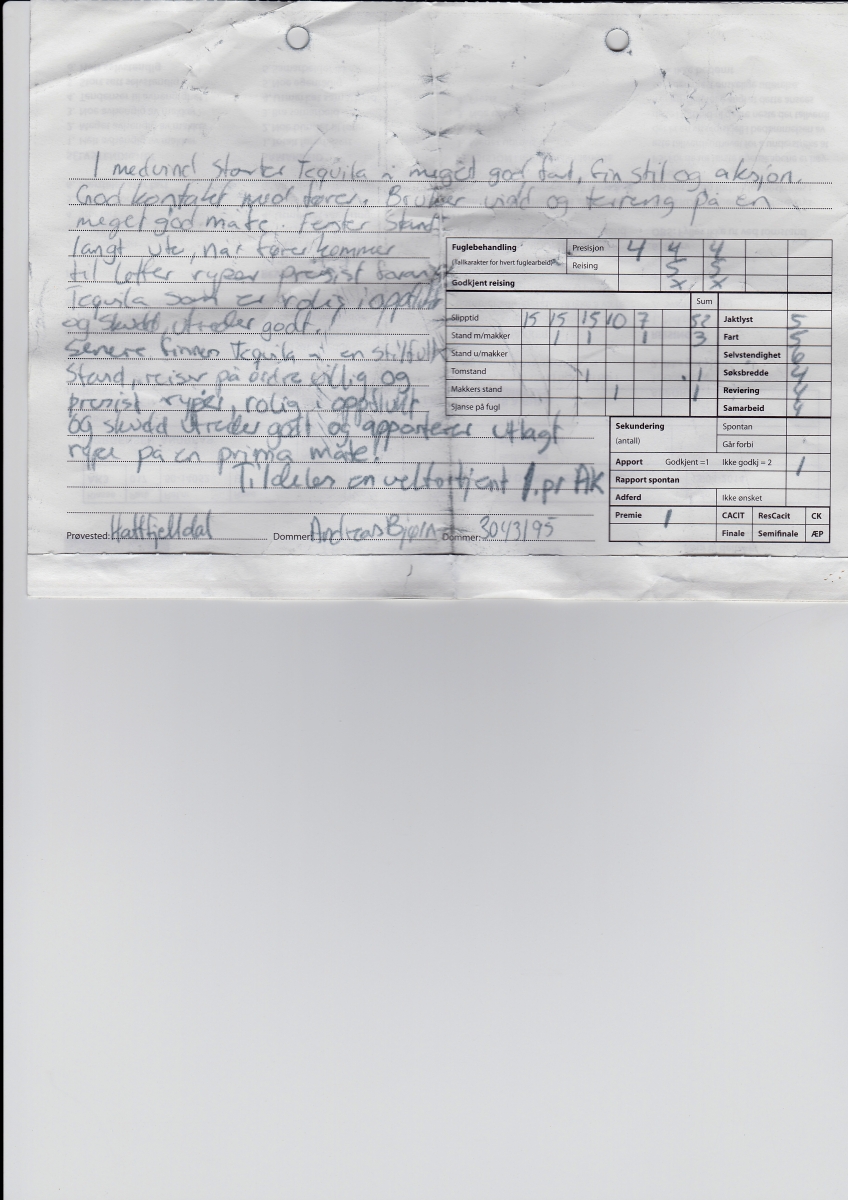 I medvind starter Tequila i meget god fart, fin stil og aksjon.
God kontakt med fører. Bruker vidd og terreng på en
meget god måte. Fester Stand
langt ute, når fører kommer
til letter ryper presist foran
Tequila som er rolig i oppflukt
og skudd, utreder godt.
Senere finnes Tequila i en stilfull
Stand, reiser på ordre villig og
presist ryper, rolig i oppflukt
og skudd utreder gott og apporterer utlagt
rype på en prima måte!
Tildeles en velfortjent 1.pr AK
Prøvested: Hattfjelldal Dommer: Andreas Bjørn Dommer: 30/3/95
Fuglebehandling Presisjon 4 4 4
(Tallkarakter for hvert fuglearbeid) Reising 5 5
Godkjent reising x x
Sum
Slipptid 15 15 15 10 7 Jaktlyst 5
Stand m/makker 1 1 1 3 Fart 5
Stand u/makker Selvstendighet 6
Tomstand 1 1 Søksbredde 4
Makkers stand 1 1 Reviering 4
Sjanse på fugl Samarbeid 4
Sekundering Spontan
(antall) Går forbi
Apport Godkjent =1 Ikke godkj = 2 1
Rapport spontan
Adferd Ikke ønsket
Premie 1 CACIT ResCacit CK
Finale Semifinale ÆP